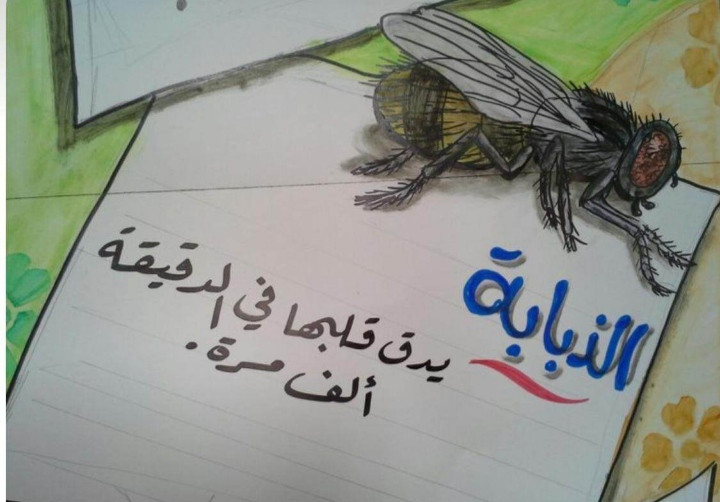 الذبابة
يدق قلبها في الدقيقة
ألف مرة.